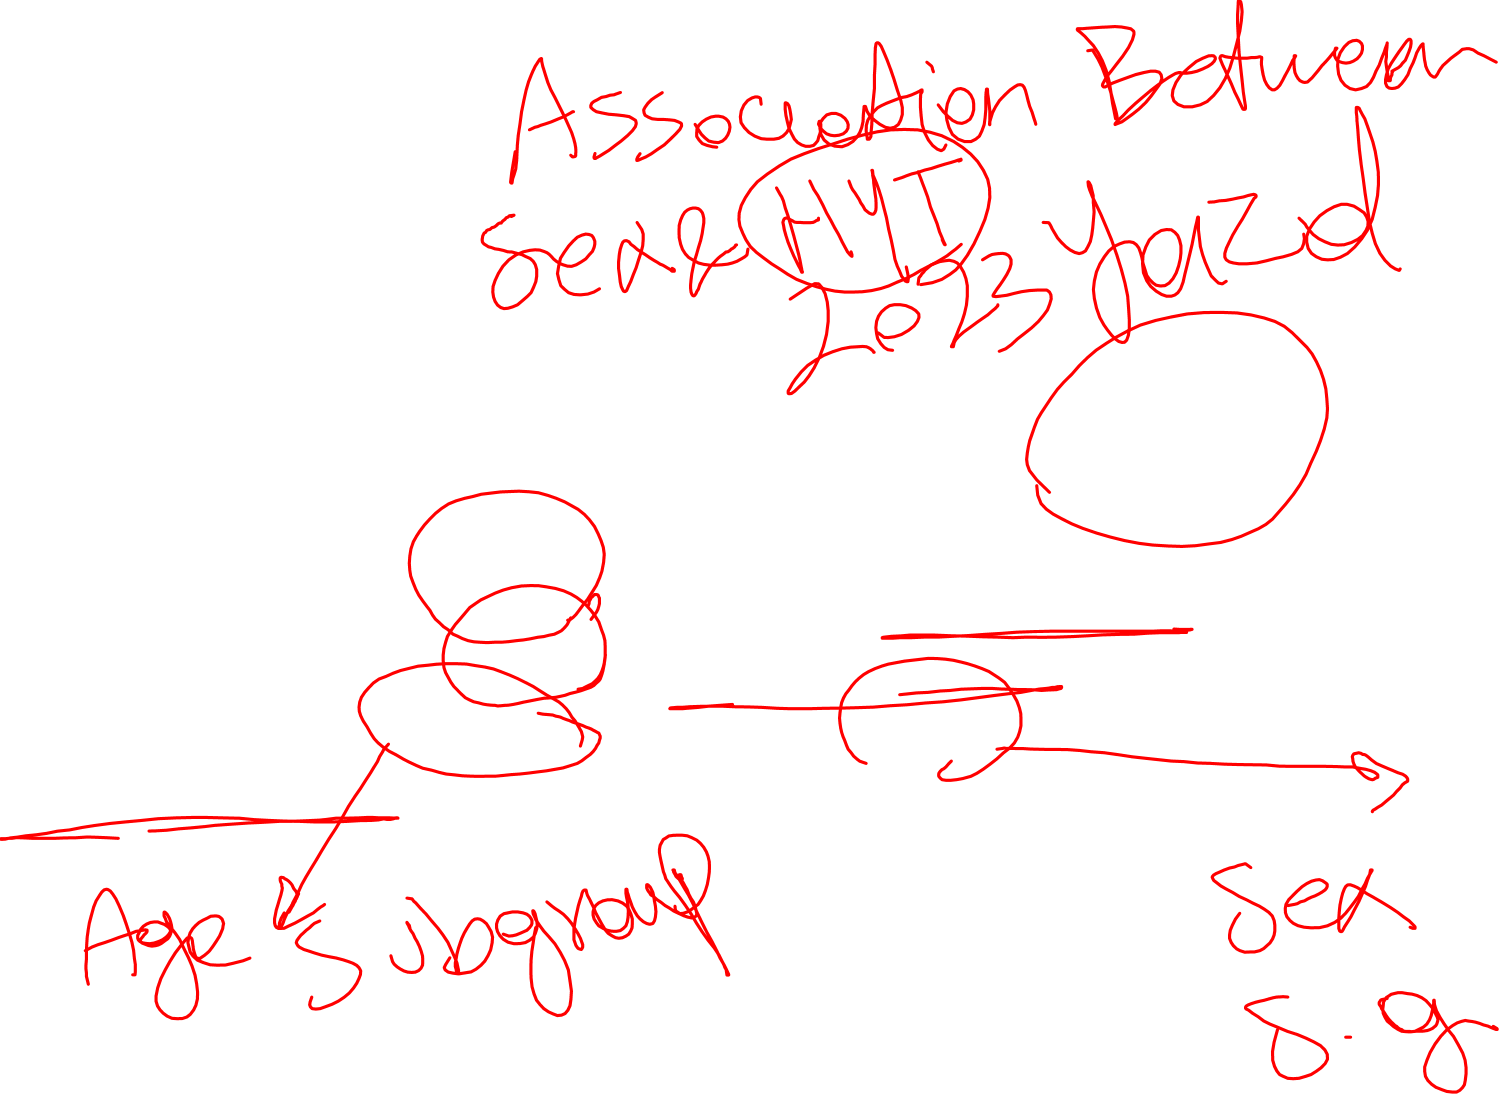 Association Between
Sex & HYT Yazd
2023
Age Subgroup
Sex
S.g